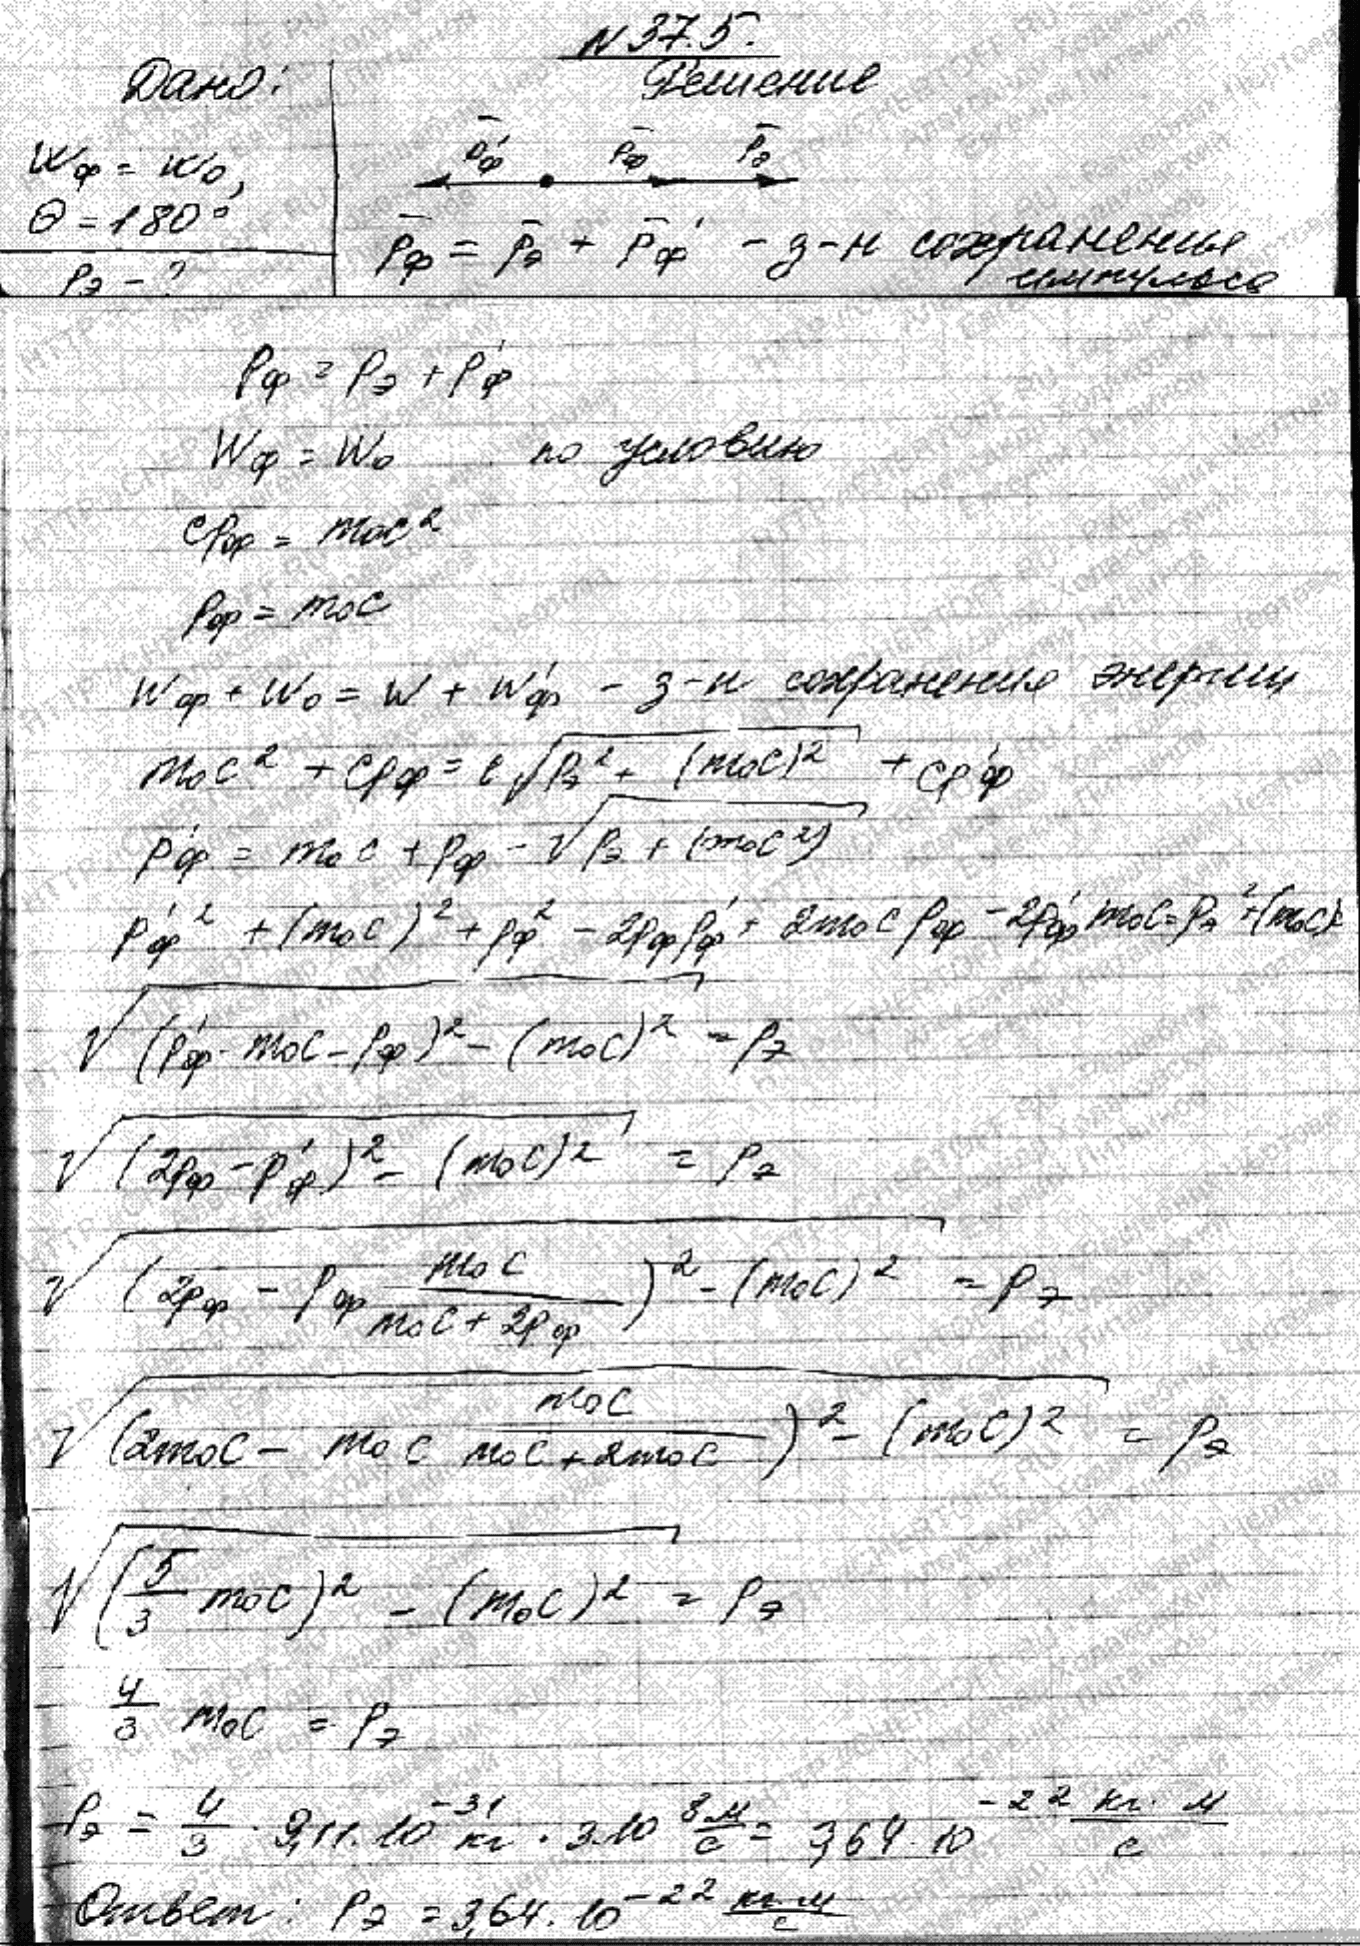 N 37.5.
Дано: Решение
Wф = W₀,
θ = 180°
Pэ - ?
P̄'ф P̄ф P̄э
P̄ф = P̄э + P̄'ф - з-н сохранения
импульса
Pф = Pэ + P'ф
Wф = W₀ по условию
cPф = m₀c²
Pф = m₀c
Wф + W₀ = W + W'ф - з-н сохранения энергии
m₀c² + cPф = c√(Pэ² + (m₀c)²) + cP'ф
P'ф = m₀c + Pф - √(Pэ + (m₀c²))
P'ф² + (m₀c)² + Pф² - 2PфP'ф + 2m₀cPф - 2P'фm₀c = Pэ² + (m₀c)²
√((P'ф - m₀c - Pф)² - (m₀c)²) = Pэ
√((2Pф - P'ф)² - (m₀c)²) = Pэ
√((2Pф - Pф m₀c/(m₀c + 2Pф))² - (m₀c)²) = Pэ
√((2m₀c - m₀c m₀c/(m₀c + 2m₀c))² - (m₀c)²) = Pэ
√((5/3 m₀c)² - (m₀c)²) = Pэ
4/3 m₀c = Pэ
Pэ = 4/3 · 9,11·10⁻³¹ кг · 3·10⁸ м/с = 3,64·10⁻²² кг·м/с
Ответ: Pэ = 3,64·10⁻²² кг·м/с